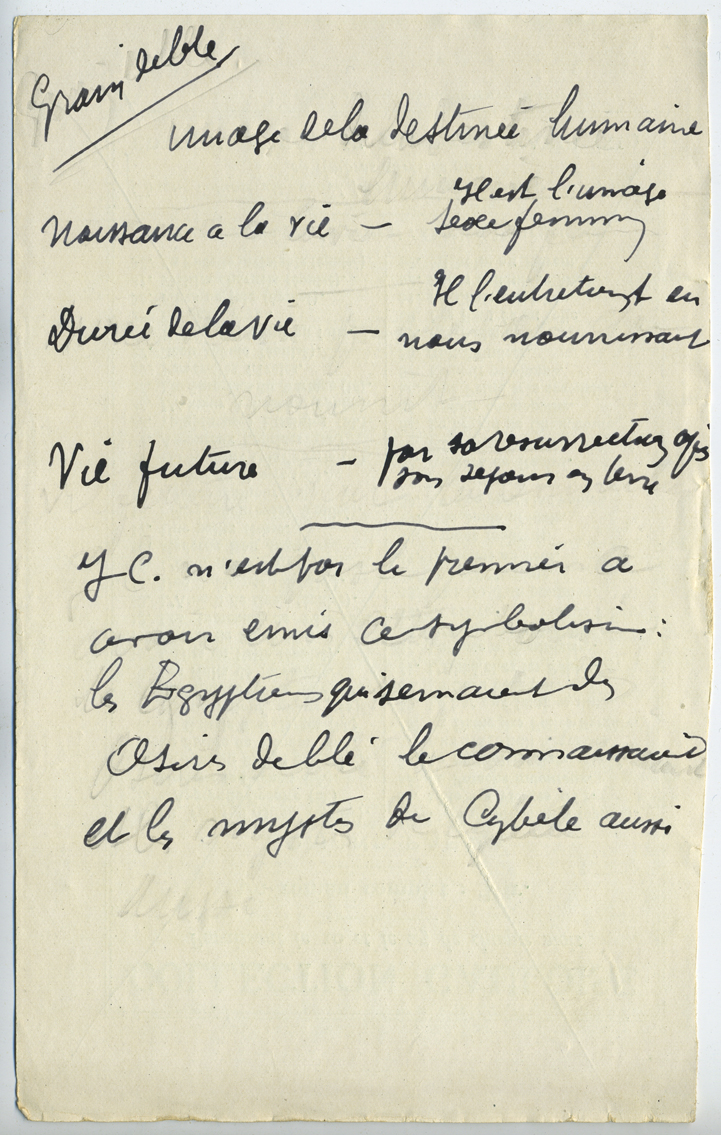 Grain de blé
image de la destinée humaine
Il est l'image
Naissance a la vie — sexe feminin
Il l'entretient en
Durée de la vie — nous nourrissant
Vie future — par sa resurrection apres
son sejour en terre
J C. n'est pas le premier a
avoir emis ce symbolisme :
les Egyptiens qui semaient des
Osiris de blé le connaissaient
et les mystes de Cybèle aussi